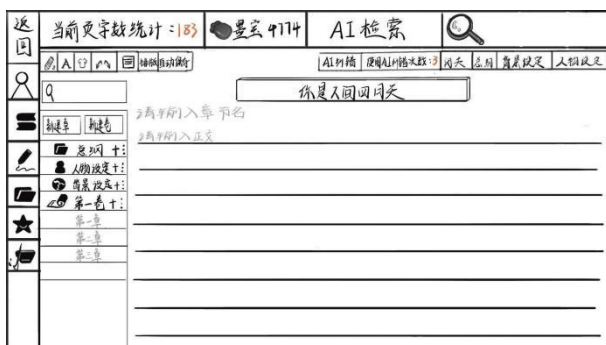 返回
当前页字数统计:183
墨宝4774
AI检索
A
排版自动保存
AI纠错
使用AI纠错次数:3
闲天
总用
背景设定
人物设定
你是人间四闲天
请输入章节名
请输入正文
新建章
新建卷
总纲 +⋮
人物设定+⋮
背景设定+⋮
第一卷+⋮
第一章
第二章
第三章